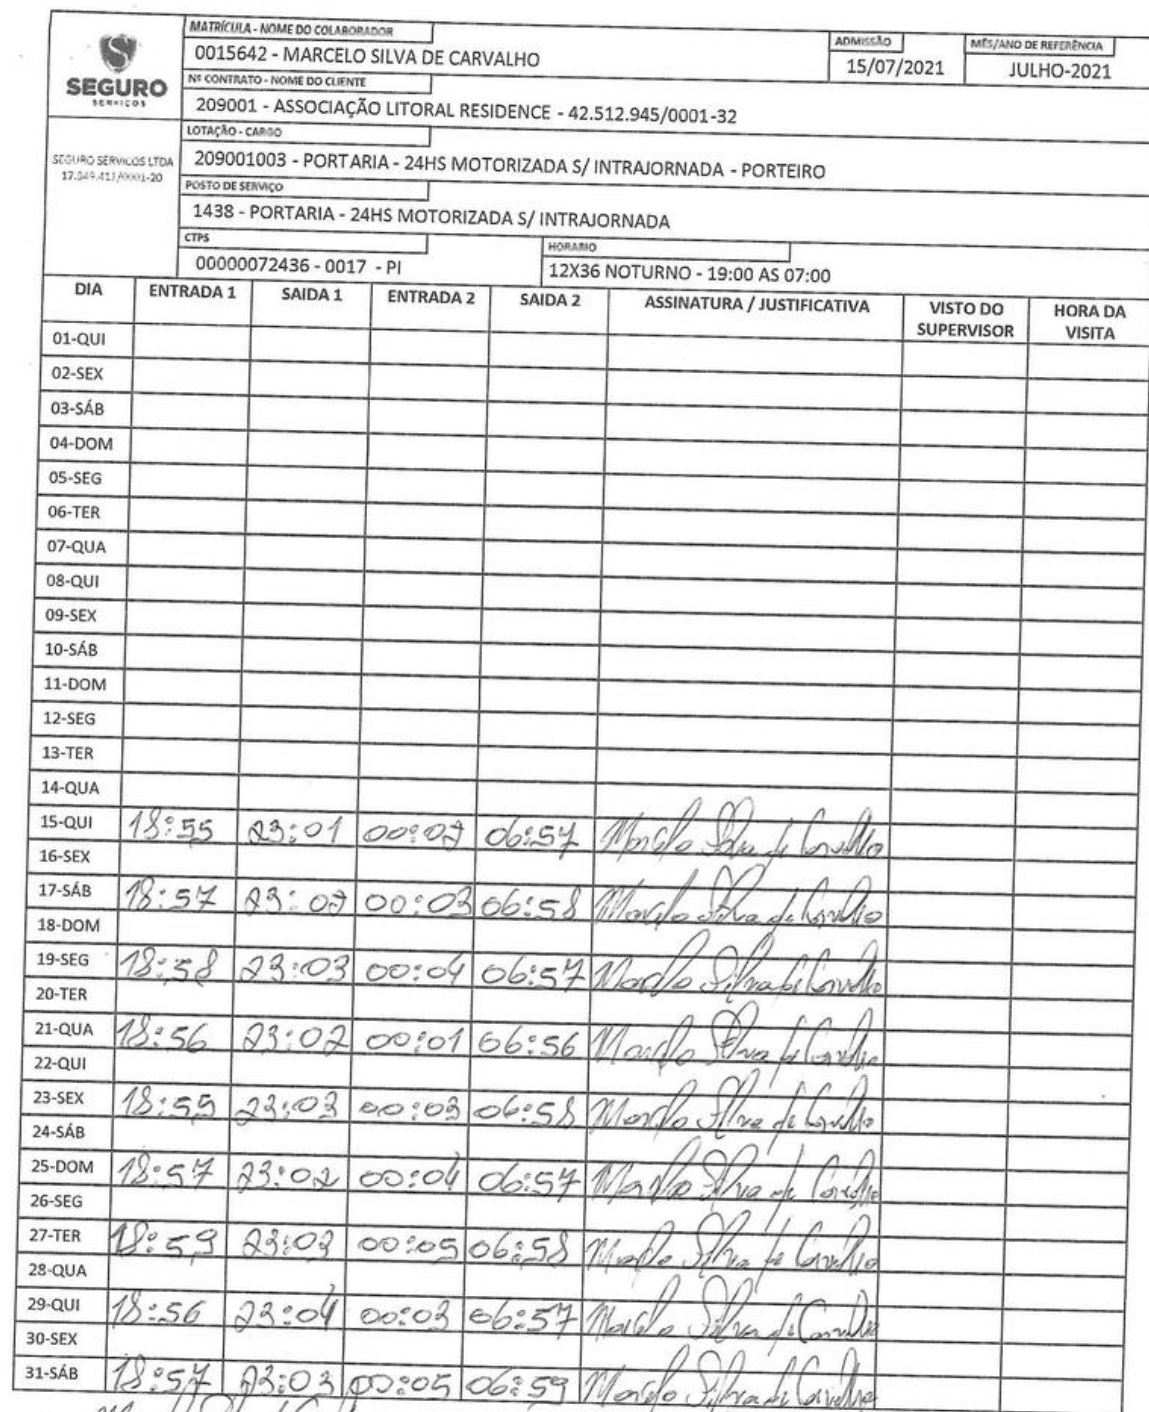 MATRÍCULA - NOME DO COLABORADOR
ADMISSÃO
MÊS/ANO DE REFERÊNCIA
0015642 - MARCELO SILVA DE CARVALHO
15/07/2021
JULHO-2021
SEGURO
SERVICOS
Nº CONTRATO - NOME DO CLIENTE
209001 - ASSOCIAÇÃO LITORAL RESIDENCE - 42.512.945/0001-32
LOTAÇÃO - CARGO
SEGURO SERVICOS LTDA
209001003 - PORTARIA - 24HS MOTORIZADA S/ INTRAJORNADA - PORTEIRO
POSTO DE SERVIÇO
1438 - PORTARIA - 24HS MOTORIZADA S/ INTRAJORNADA
CTPS
HORARIO
00000072436 - 0017 - PI
12X36 NOTURNO - 19:00 AS 07:00
DIA ENTRADA 1 SAIDA 1 ENTRADA 2 SAIDA 2 ASSINATURA / JUSTIFICATIVA VISTO DO SUPERVISOR HORA DA VISITA
01-QUI
02-SEX
03-SÁB
04-DOM
05-SEG
06-TER
07-QUA
08-QUI
09-SEX
10-SÁB
11-DOM
12-SEG
13-TER
14-QUA
15-QUI 18:55 23:01 00:02 06:57 Marcelo Silva de Carvalho
16-SEX
17-SÁB 18:57 23:02 00:03 06:58 Marcelo Silva de Carvalho
18-DOM
19-SEG 18:58 23:03 00:04 06:57 Marcelo Silva de Carvalho
20-TER
21-QUA 18:56 23:02 00:01 06:56 Marcelo Silva de Carvalho
22-QUI
23-SEX 18:59 23:03 00:03 06:58 Marcelo Silva de Carvalho
24-SÁB
25-DOM 18:57 23:02 00:04 06:57 Marcelo Silva de Carvalho
26-SEG
27-TER 18:59 23:03 00:05 06:58 Marcelo Silva de Carvalho
28-QUA
29-QUI 18:56 23:04 00:03 06:57 Marcelo Silva de Carvalho
30-SEX
31-SÁB 18:57 23:03 00:05 06:59 Marcelo Silva de Carvalho